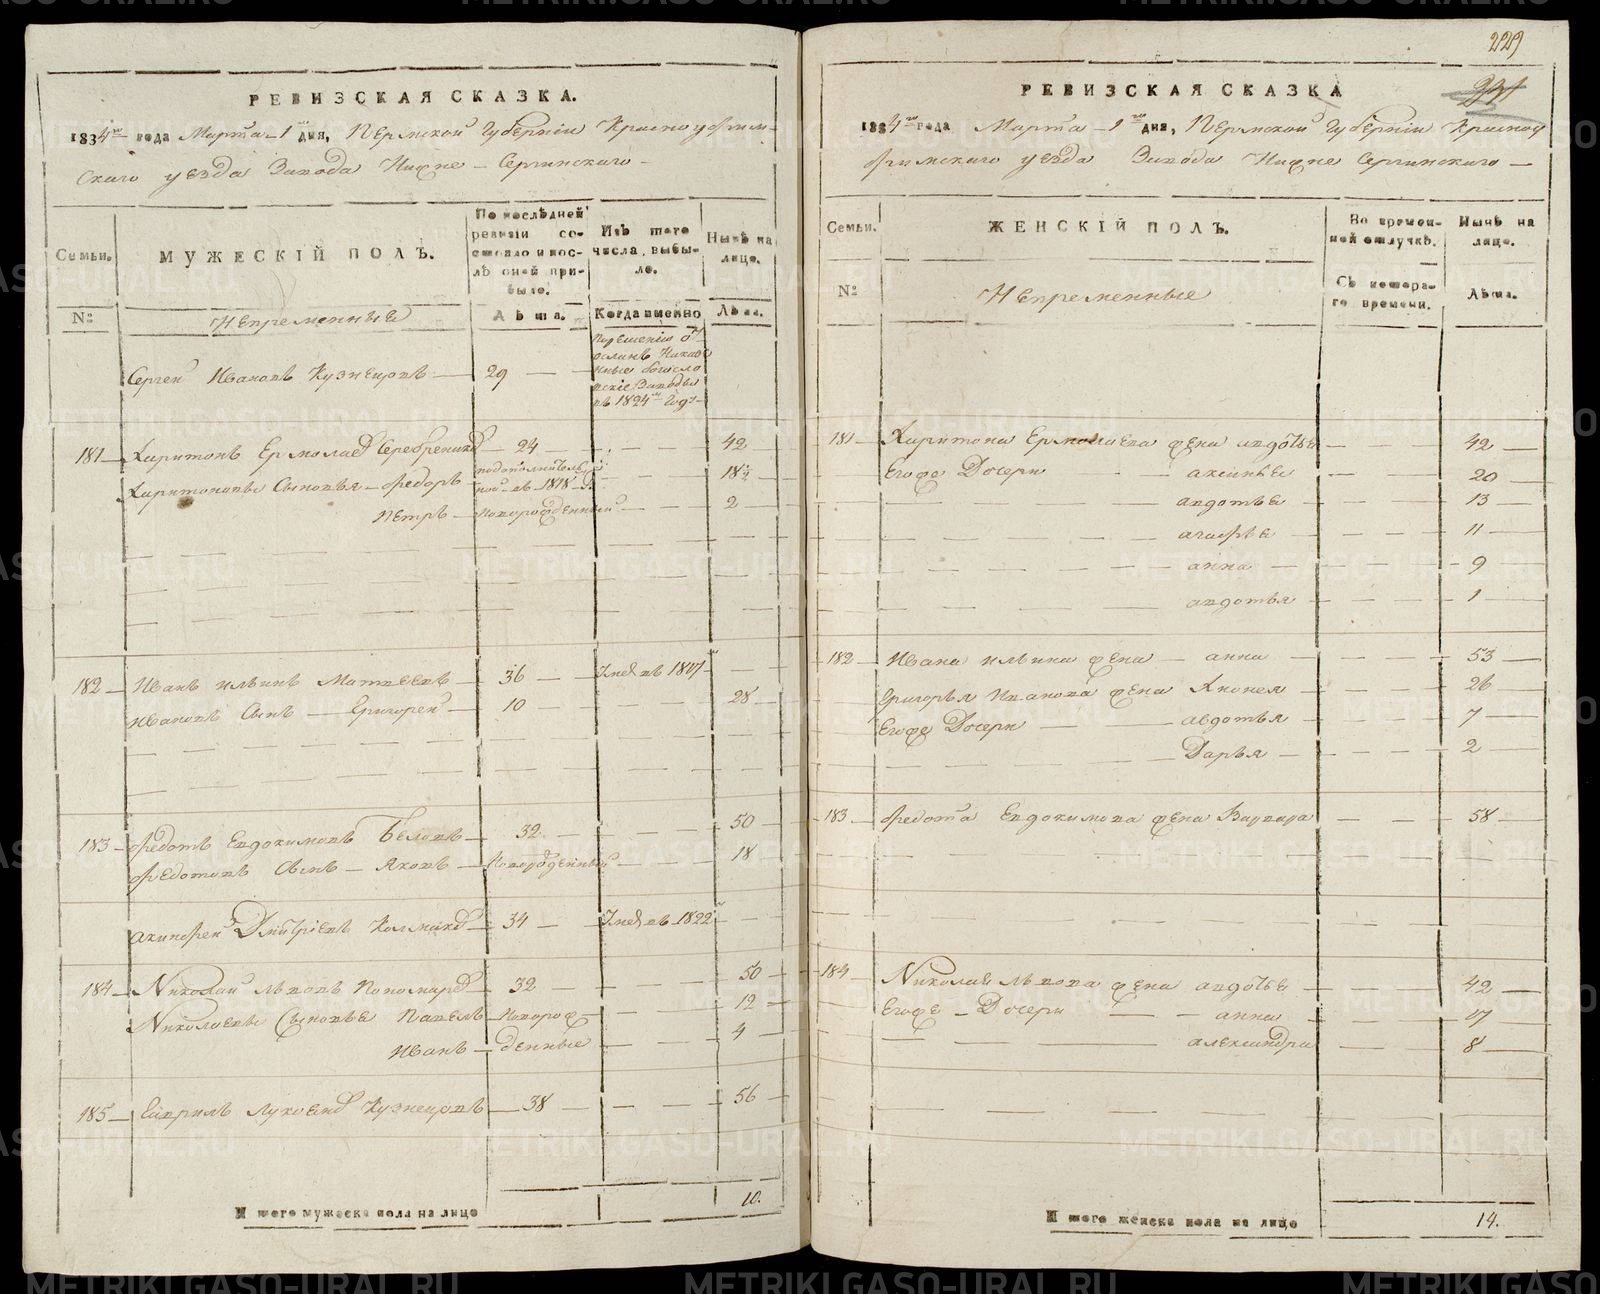 РЕВИЗСКАЯ СКАЗКА.
1834го года Марта 1го дня, Пермской Губернiи Красноуфим-
скаго уезда Завода Нижне-Сергинскаго
Семьи.
МУЖЕСКIЙ ПОЛЪ.
По последней ревизiи состояло и после оной прибыло.
Изъ того числа, выбыло.
Ныне на лицо.
№
Непременные
Лета.
Когда именно
Лета.
Сергей Ивановъ Кузнецовъ 29
въ 1824м году
181 Харитонъ Ермолаевъ Серебрениковъ 24 42
Харитоновы Сыновья Федоръ 18½
въ 1818 г.
Петръ новорожденный 2
182 Иванъ Ильинъ Матвеевъ 36
Ивановъ Сынъ Григорей 10 28
183 Федотъ Евдокимовъ Беловъ 32 50
Федотовъ Сынъ Яковъ новорожденный 18
Акинфей Дмитрiевъ 34 въ 1822
184 Николай Львовъ Пономаревъ 32 50
Николаевы Сыновье Павелъ новорож- 12
Иванъ денные 4
185 Гаврилъ Кузнецовъ 38 56
И того мужеска пола на лицо 10.
229
РЕВИЗСКАЯ СКАЗКА
1834го года Марта 1го дня, Пермской Губернiи Красноу
фимскаго уезда Завода Нижне Сергинскаго
Семьи.
ЖЕНСКIЙ ПОЛЪ.
Во временной отлучке.
Ныне на лицо.
№
Непременные
Съ котораго времени.
Лета.
181 Харитона Ермолаева жена авдотье 42
Егоже Дочери аксинье 20
авдотье 13
агафье 11
анна 9
авдотья 1
182 Ивана Ильина жена анна 53
Григорья Иванова жена 26
Егоже Дочери авдотья 7
Дарья 2
183 Федота Евдокимова жена Варвара 58
184 Николая Львова жена авдотье 42
Егоже Дочери анна 17
александра 8
И того женска пола на лицо 14.
METRIKI.GASO-URAL.RU